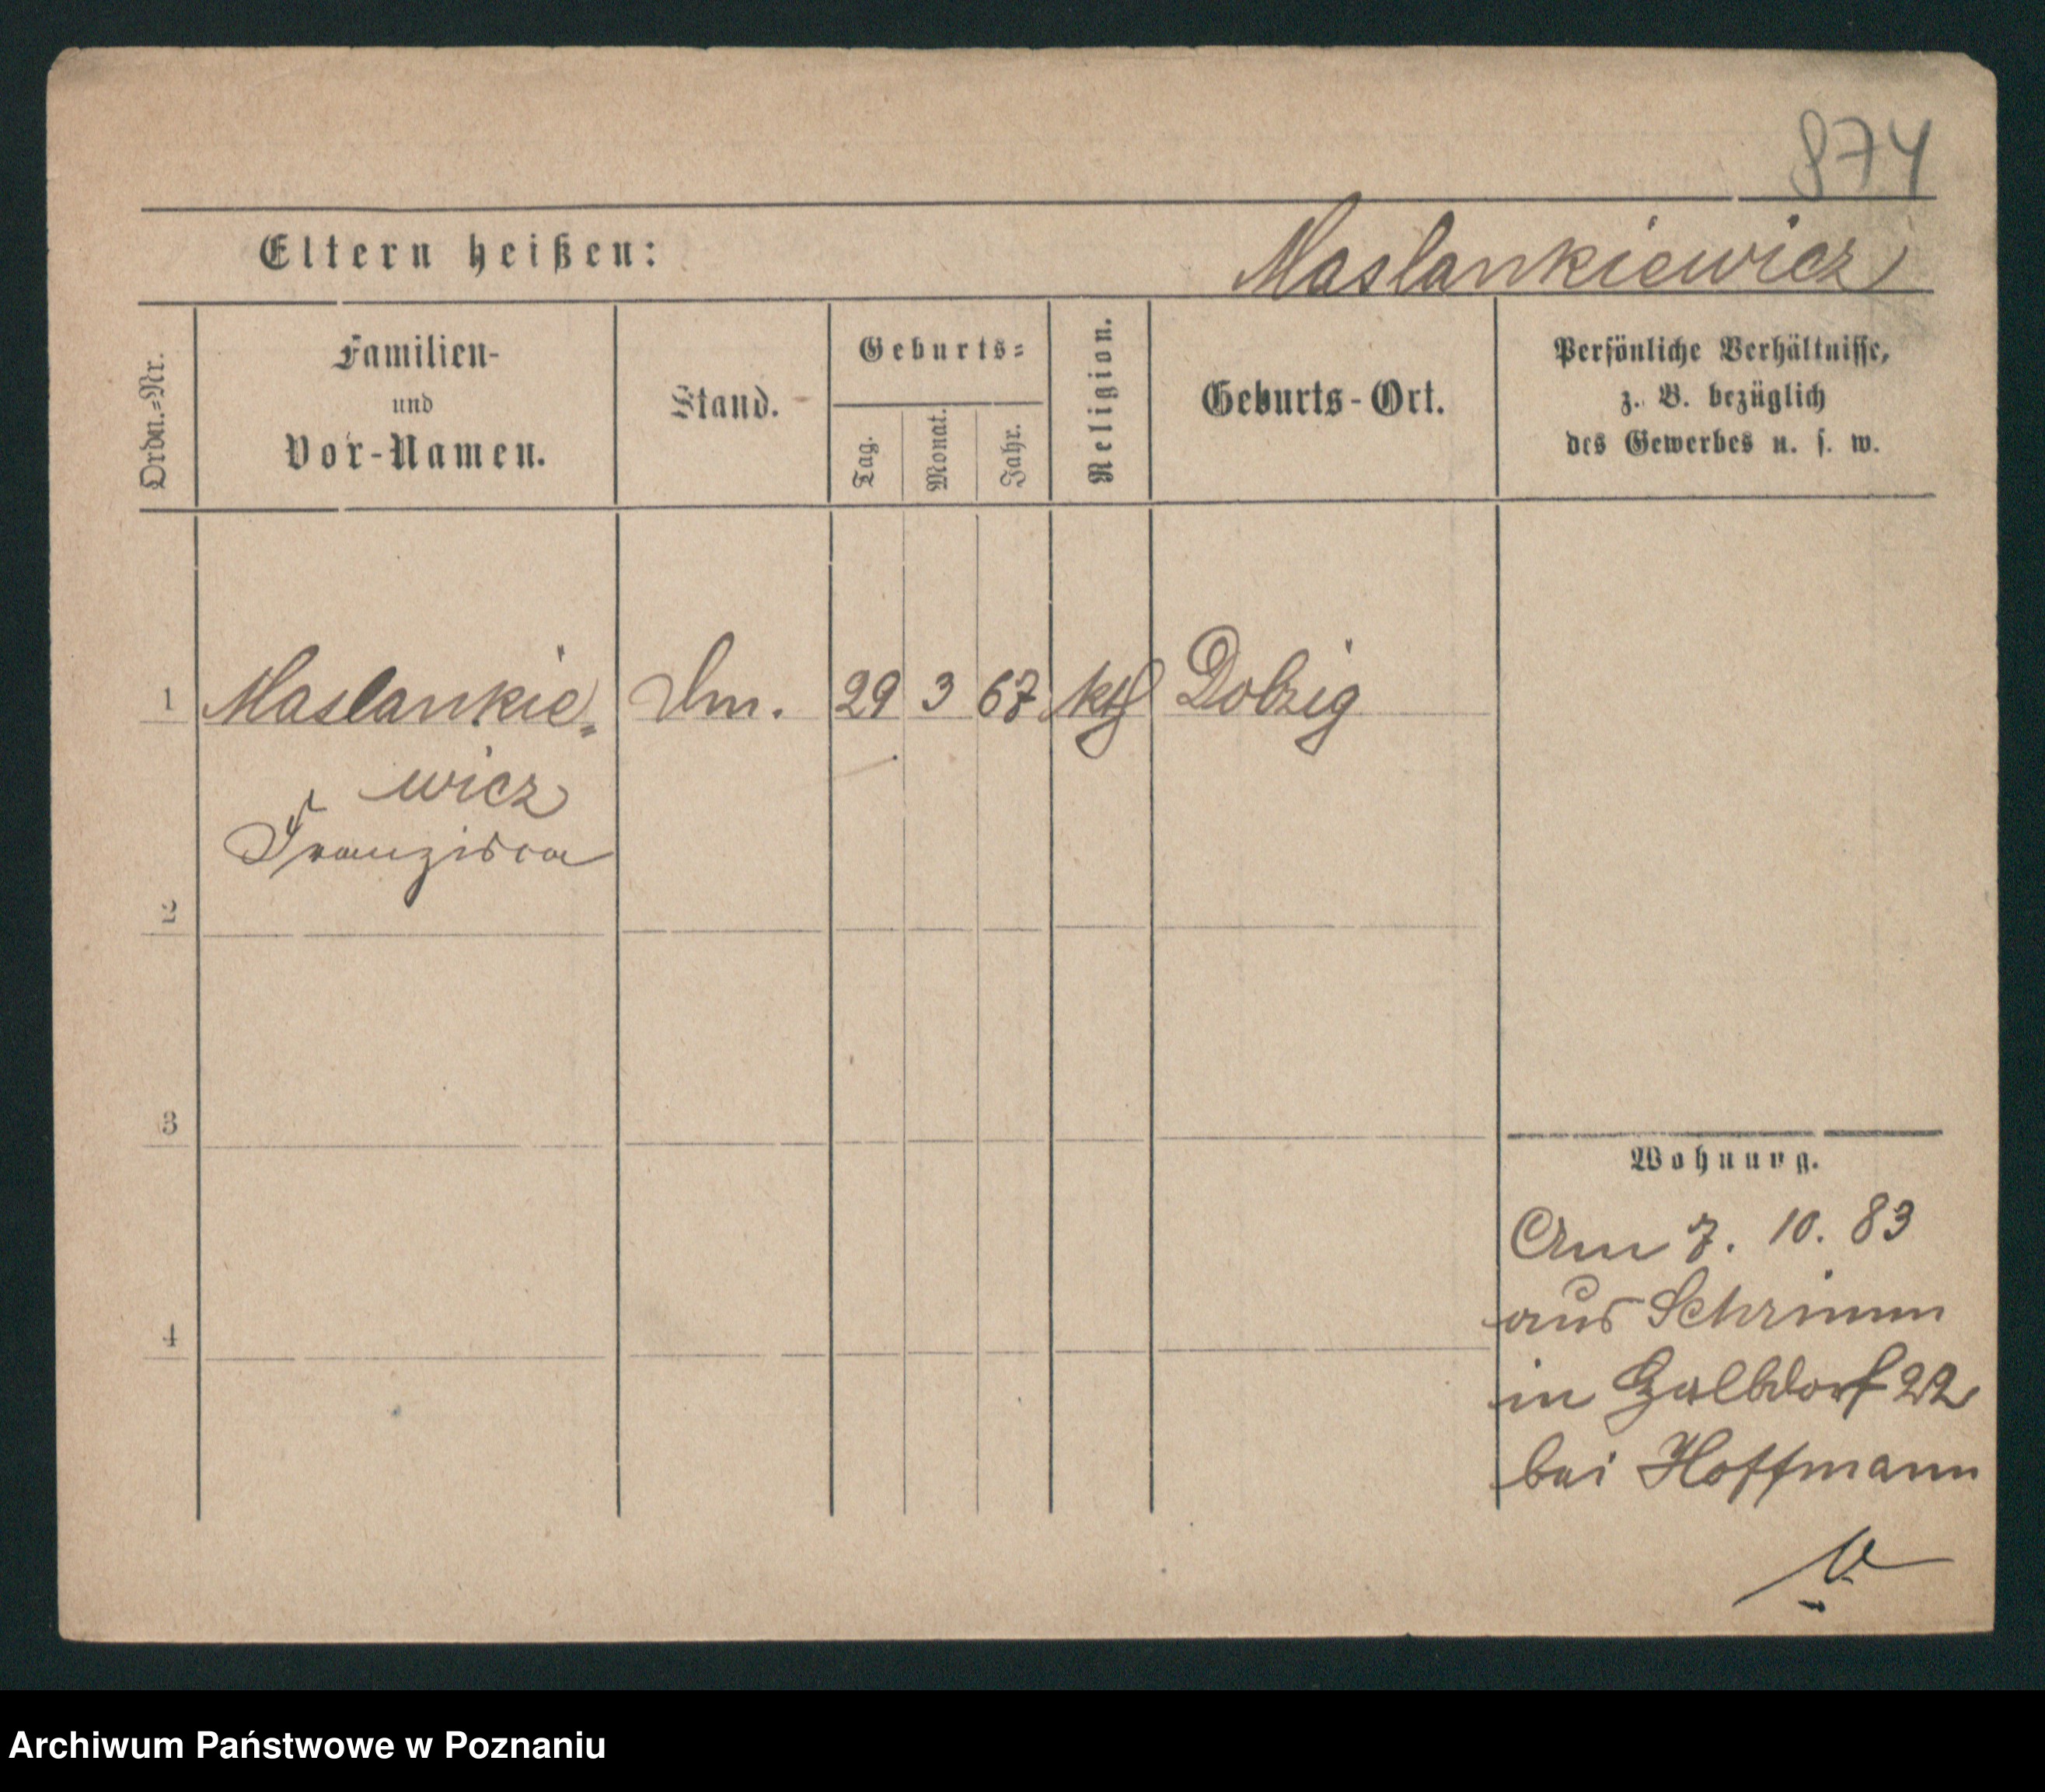 874
Eltern heißen: Maslankiewicz
Ordn.=Nr.
Familien-
und
Vor-Namen.
Stand.
Geburts=
Tag.
Monat.
Jahr.
Religion.
Geburts-Ort.
Persönliche Verhältnisse,
z. B. bezüglich
des Gewerbes u. s. w.
1 Maslankie= 29 3 67 kth Dolzig
wicz
Franzisca
2
3
4
Wohnung.
Am 7. 10. 83
aus Schrimm
in Halbdorf 22
bei Hoffmann
Archiwum Państwowe w Poznaniu